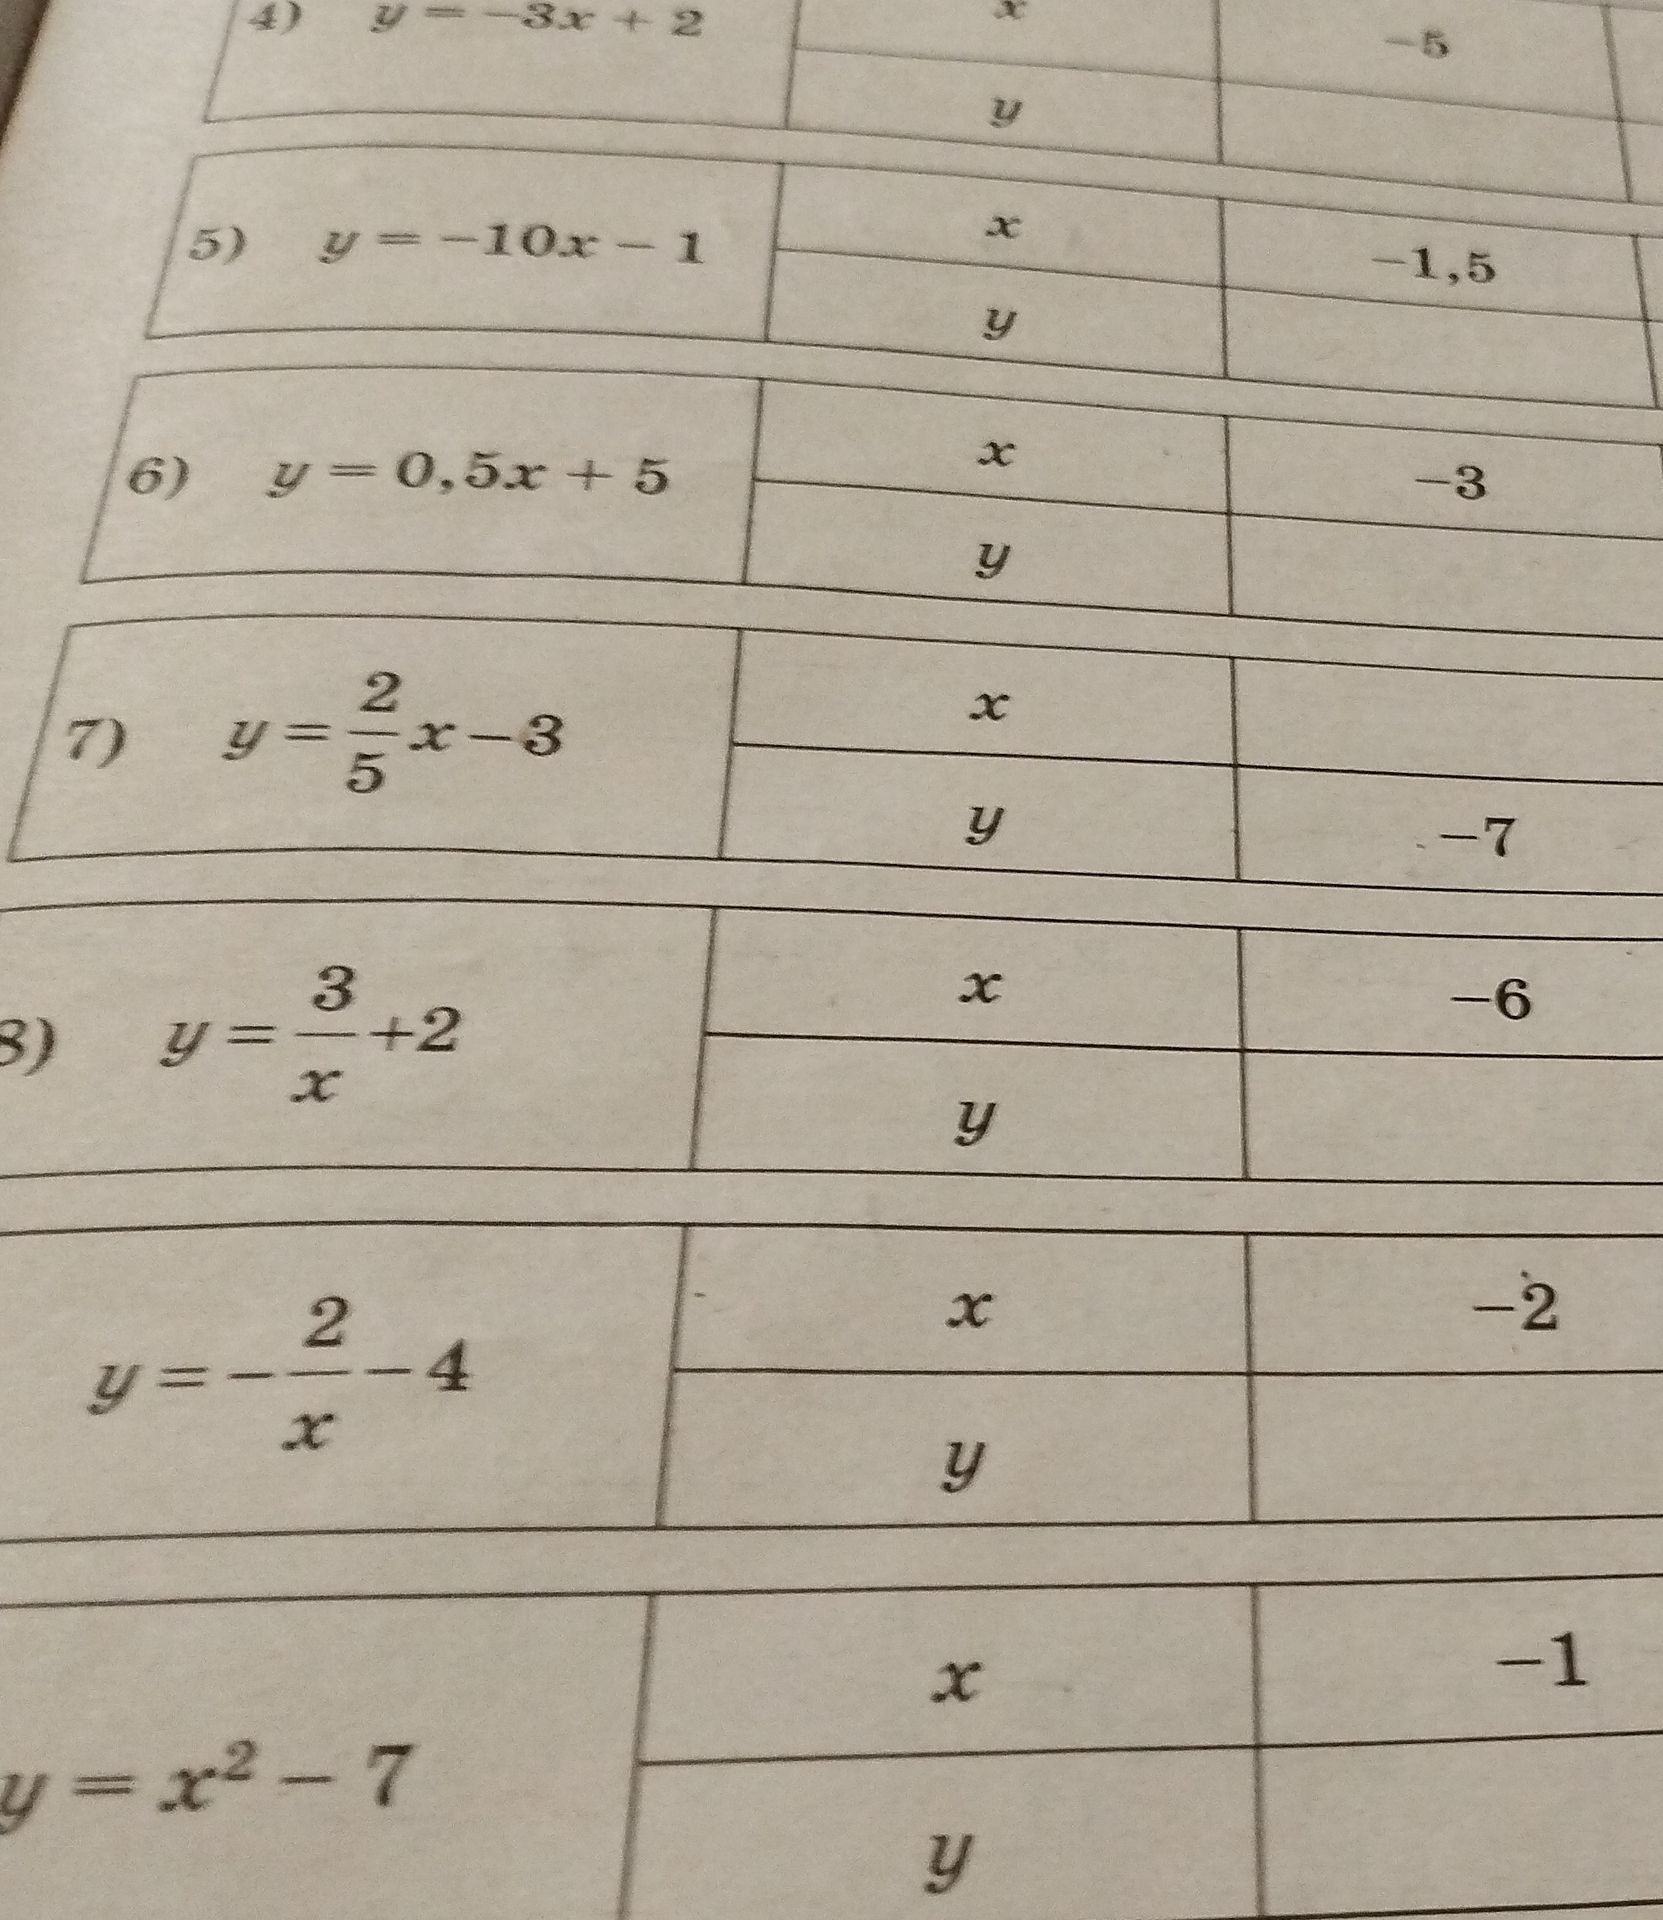 4) y = −3x + 2 x −5
y
5) y = −10x − 1 x −1,5
y
6) y = 0,5x + 5 x −3
y
7) y = 2/5 x − 3 x
y −7
8) y = 3/x + 2 x −6
y
y = − 2/x − 4 x −2
y
y = x² − 7 x −1
y